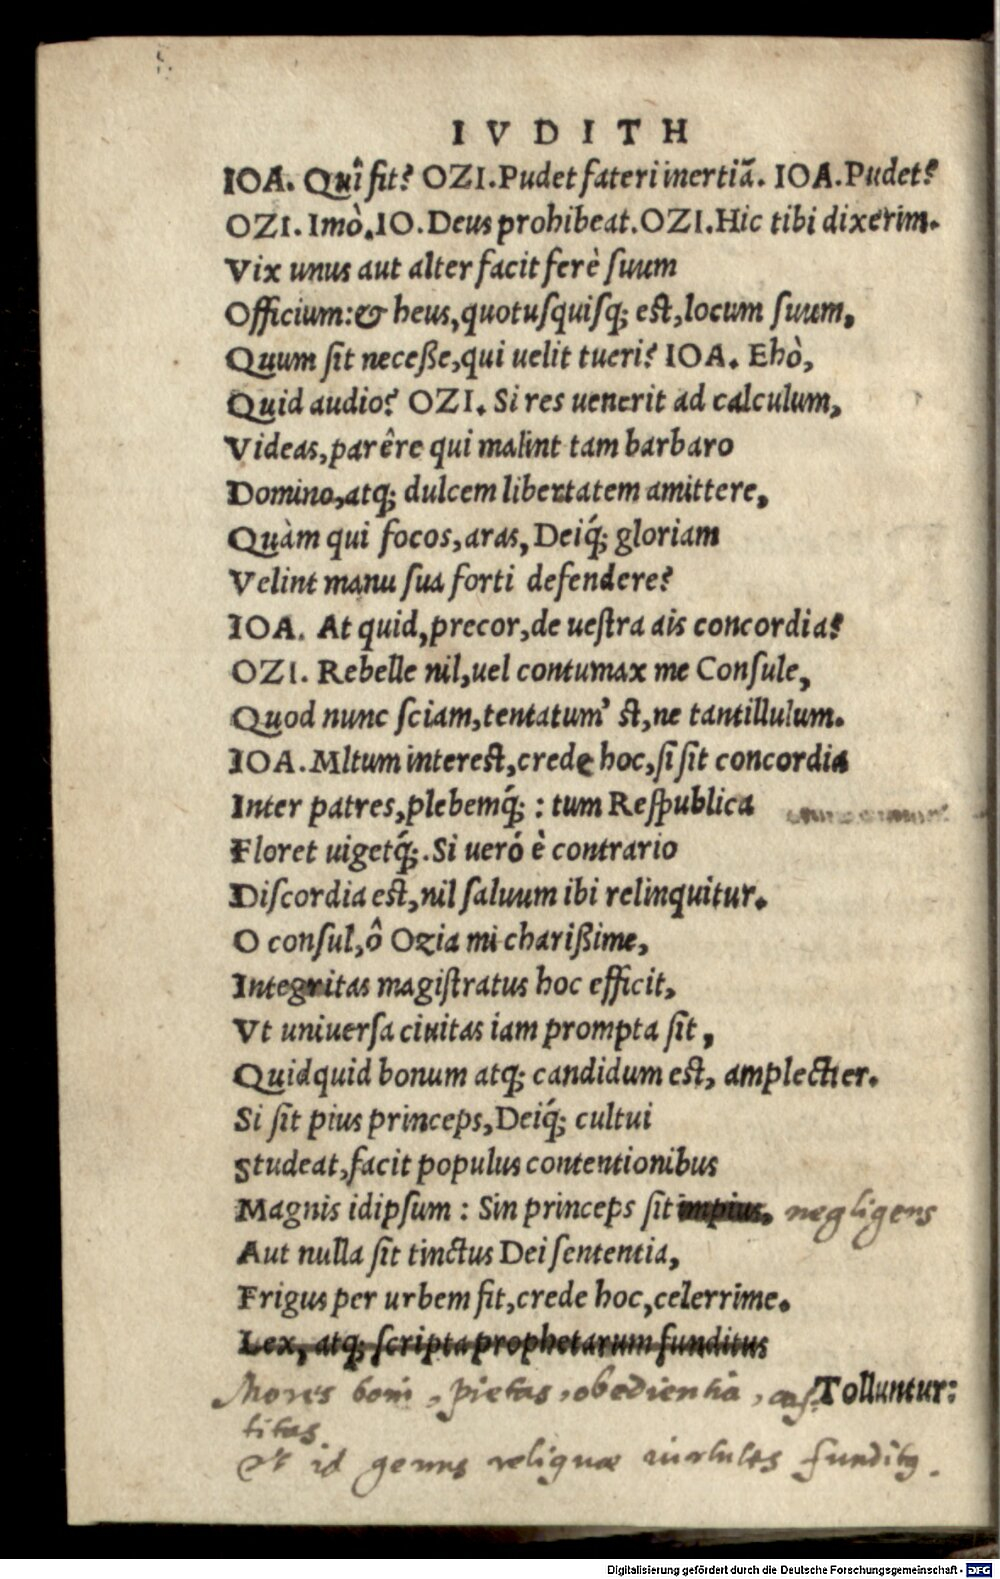 IVDITH
IOA. Quî fit? OZI. Pudet fateri inertiã. IOA. Pudet?
OZI. Imò. IO. Deus prohibeat. OZI. Hic tibi dixerim.
Vix unus aut alter facit ferè suum
Officium: & heus, quotusquisq; est, locum suum,
Quum sit neceße, qui uelit tueri? IOA. Ehò,
Quid audio? OZI. Si res uenerit ad calculum,
Videas, parêre qui malint tam barbaro
Domino, atq; dulcem libertatem amittere,
Quàm qui focos, aras, Deiq́; gloriam
Velint manu sua forti defendere?
IOA. At quid, precor, de uestra ais concordia?
OZI. Rebelle nil, uel contumax me Consule,
Quod nunc sciam, tentatum' st, ne tantillulum.
IOA. Mltum interest, crede hoc, si sit concordia
Inter patres, plebemq́; : tum Respublica
Floret uigetq́;. Si ueró è contrario
Discordia est, nil saluum ibi relinquitur.
O consul, ô Ozia mi charißime,
Integritas magistratus hoc efficit,
Vt uniuersa ciuitas iam prompta sit,
Quidquid bonum atq; candidum est, amplectier.
Si sit pius princeps, Deiq́; cultui
Studeat, facit populus contentionibus
Magnis idipsum : Sin princeps sit impius, negligens
Aut nulla sit tinctus Dei sententia,
Frigus per urbem fit, crede hoc, celerrime.
Lex, atq; scripta prophetarum funditus
Mores boni, pietas, obedientia, cas- Tolluntur:
titas
Et id genus reliquae uirtutes funditus.
Digitalisierung gefördert durch die Deutsche Forschungsgemeinschaft - DFG